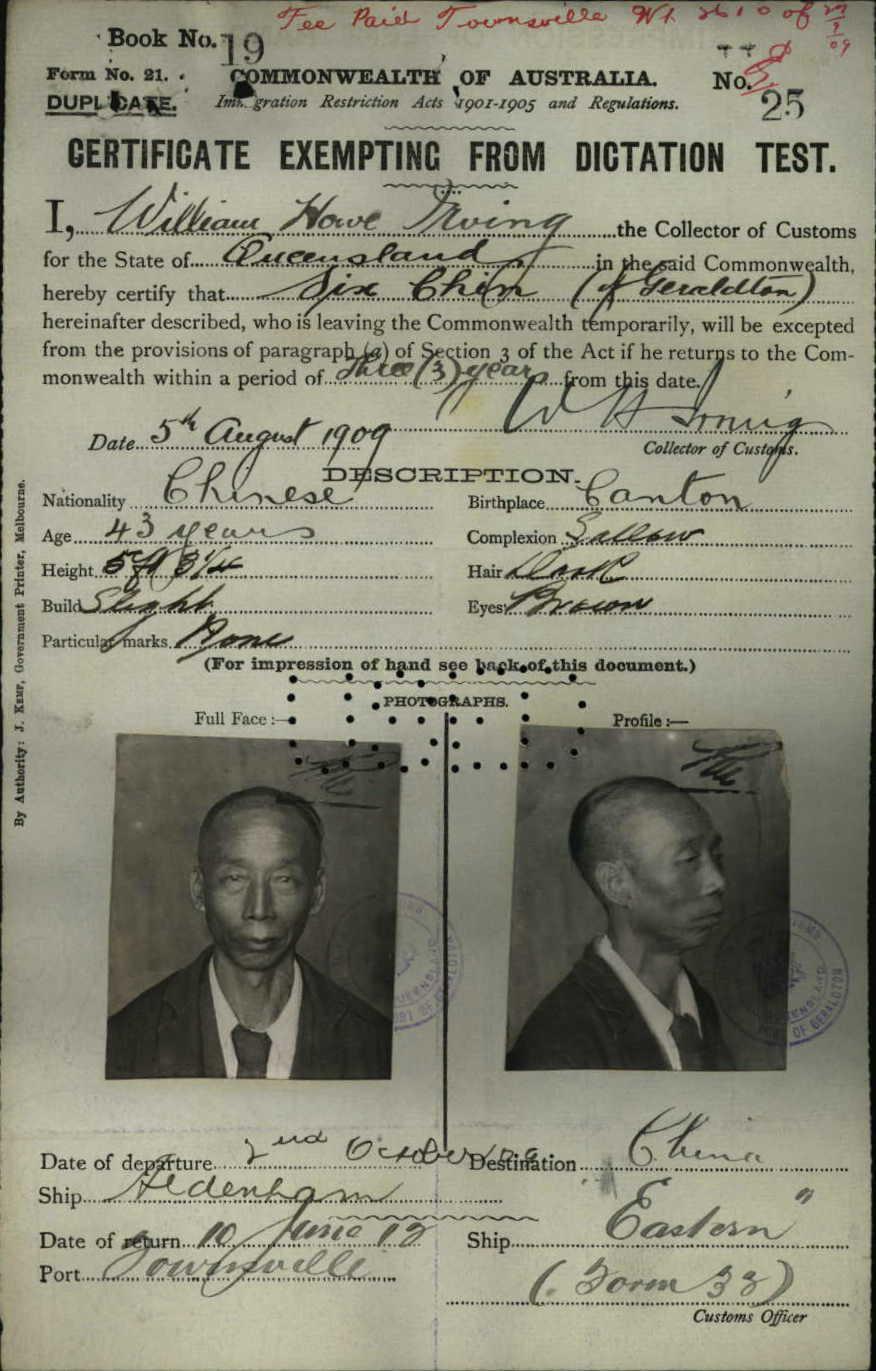 Fee Paid Townsville
Book No. 19
Form No. 21.
COMMONWEALTH OF AUSTRALIA.
No. 25
DUPLICATE.
Immigration Restriction Acts 1901-1905 and Regulations.
CERTIFICATE EXEMPTING FROM DICTATION TEST.
I, William Howe Irving the Collector of Customs
for the State of Queensland in the said Commonwealth,
hereby certify that Six Chin (of Geraldton)
hereinafter described, who is leaving the Commonwealth temporarily, will be excepted
from the provisions of paragraph (a) of Section 3 of the Act if he returns to the Com-
monwealth within a period of three (3) years from this date.
W H Irving
Date 5th August 1909
Collector of Customs.
DESCRIPTION.
Nationality Chinese
Birthplace Canton
Age 43 years
Complexion Sallow
Height 5ft 3 1/4
Hair Dark
Build Slight
Eyes Brown
Particular marks None
(For impression of hand see back of this document.)
PHOTOGRAPHS.
Full Face :—
Profile :—
By Authority: J. KEMP, Government Printer, Melbourne.
QUEENSLAND
PORT OF GERALDTON
QUEENSLAND
OF GERALDTON
Date of departure 2nd October 09
Destination China
Ship Aldenham
Date of return 10 June 12
Ship Eastern
Port Townsville
(Form 32)
Customs Officer